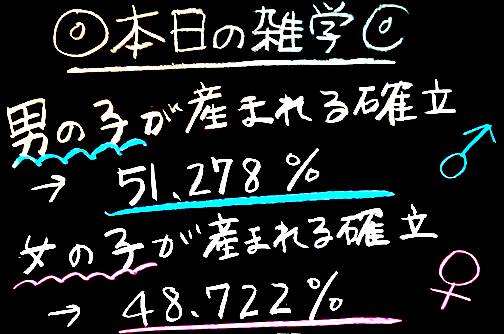 ◎本日の雑学◎
男の子が産まれる確立
→ 51.278%
女の子が産まれる確立
→ 48.722%